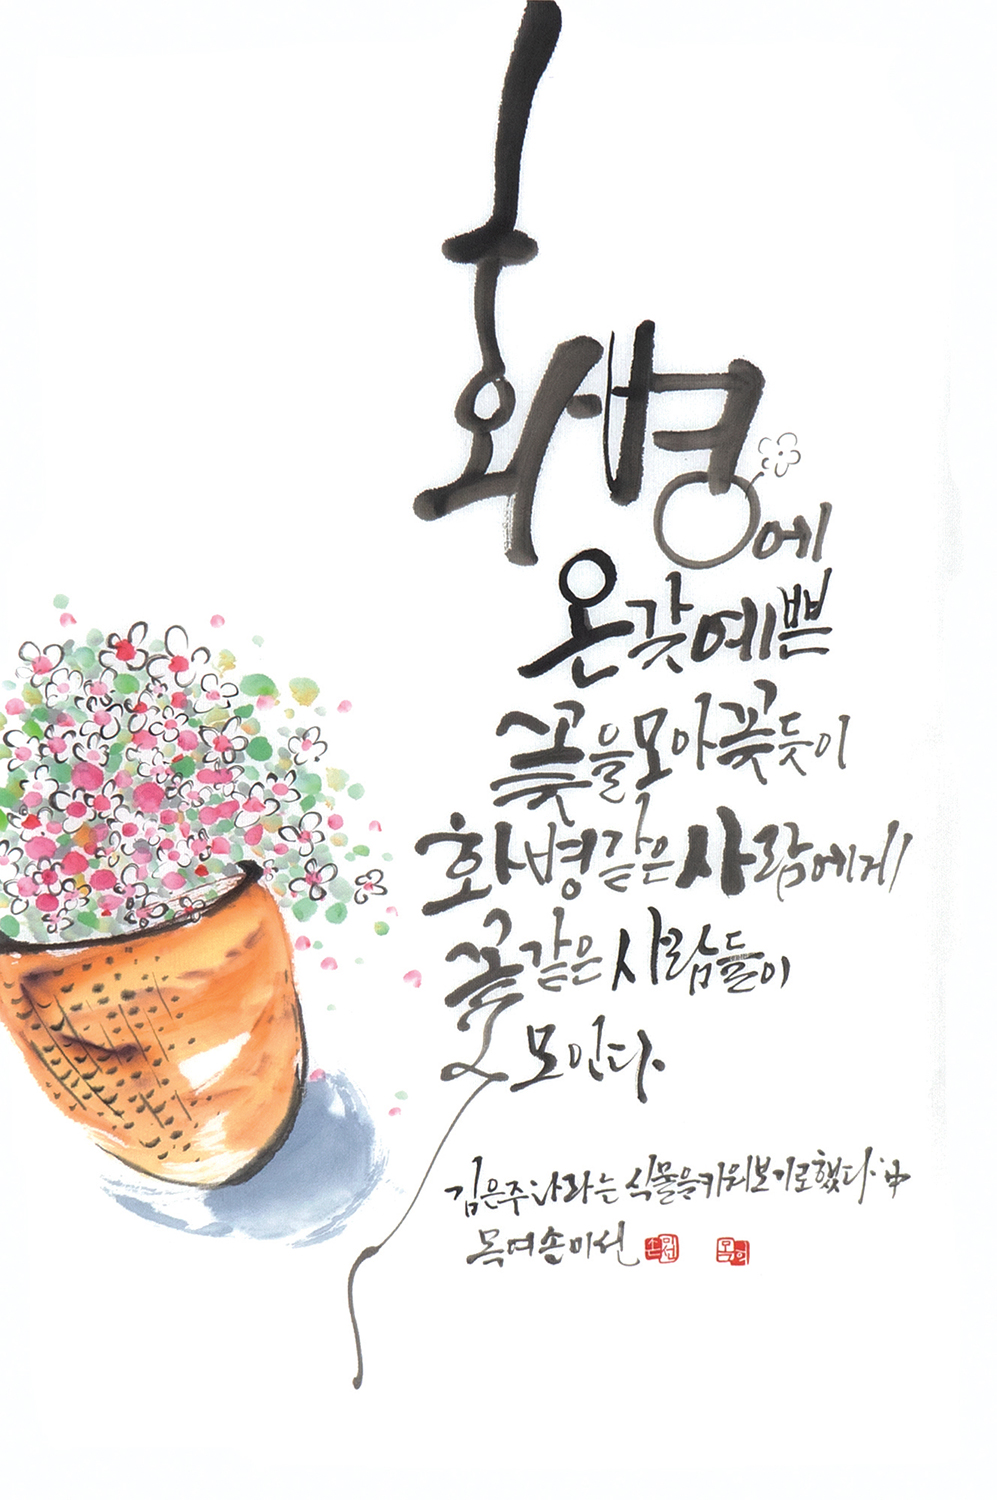 화병에
온갖 예쁜
꽃을 모아 꽂듯이
화병 같은 사람에게
꽃 같은 사람들이
모인다.
김은주 나라는 식물을 키워보기로 했다. 中
목여 손미선